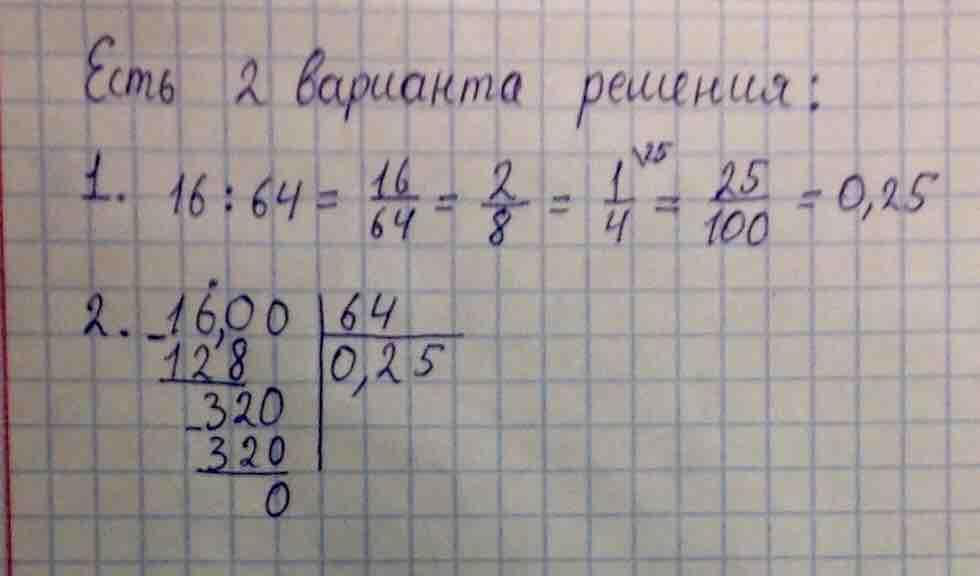 Есть 2 варианта решения:
1. 16 : 64 = 16/64 = 2/8 = 1/4 \25 = 25/100 = 0,25
2. -16,00 | 64
128 | 0,25
-320
320
0